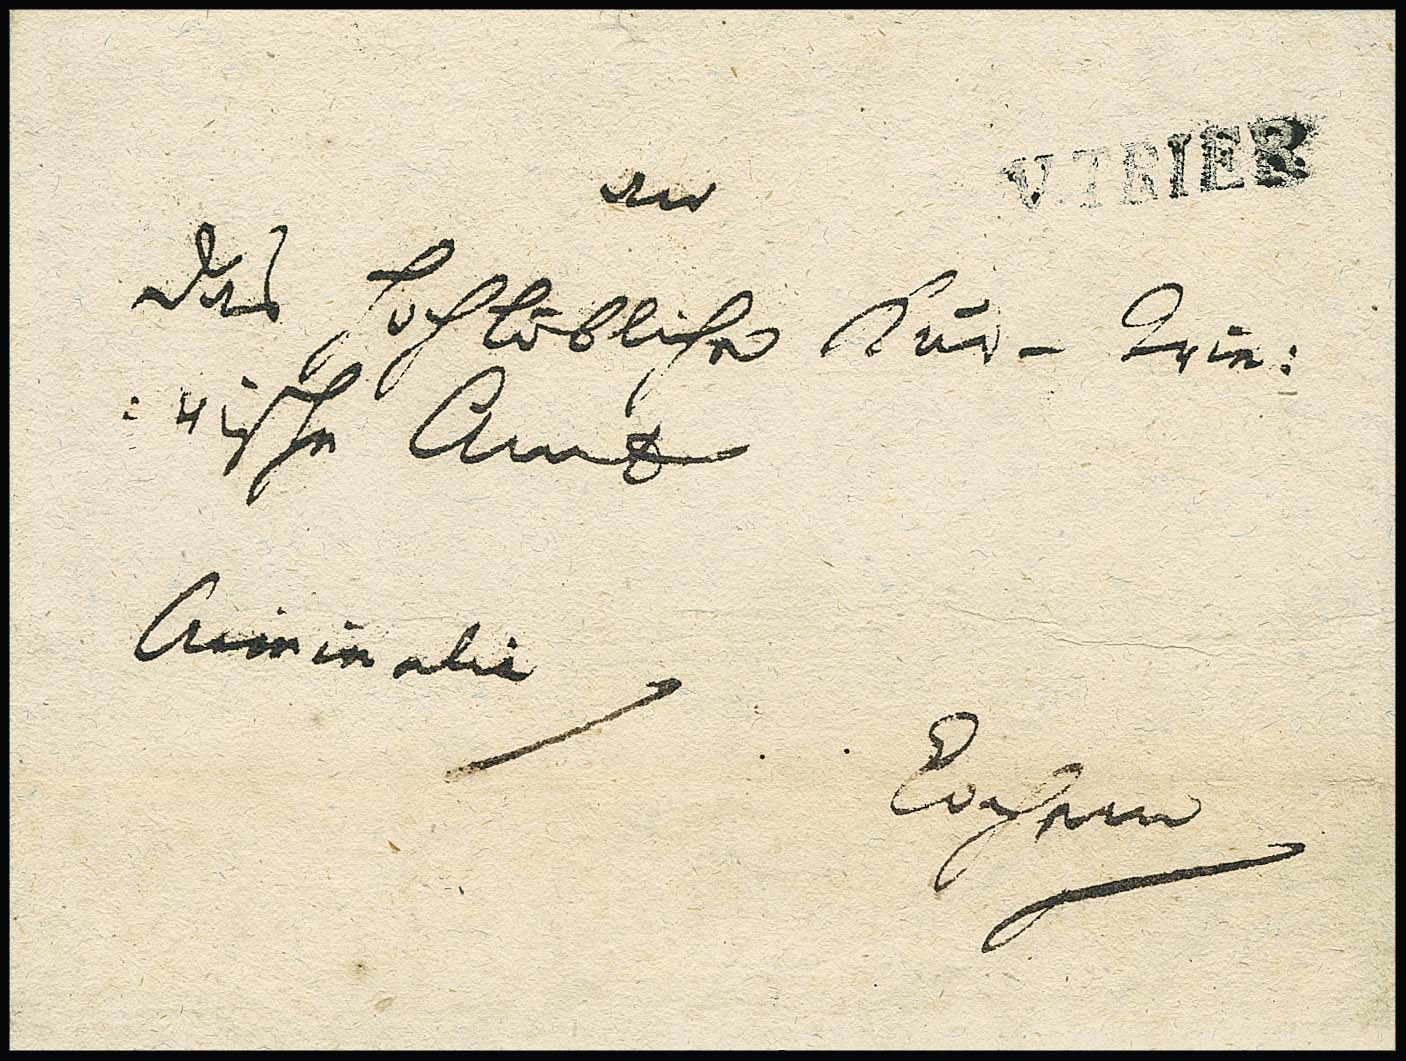 V. TRIER
an
das Hochlöbliche Kur- Trie:
:rische Amt
Criminalia
Cochem